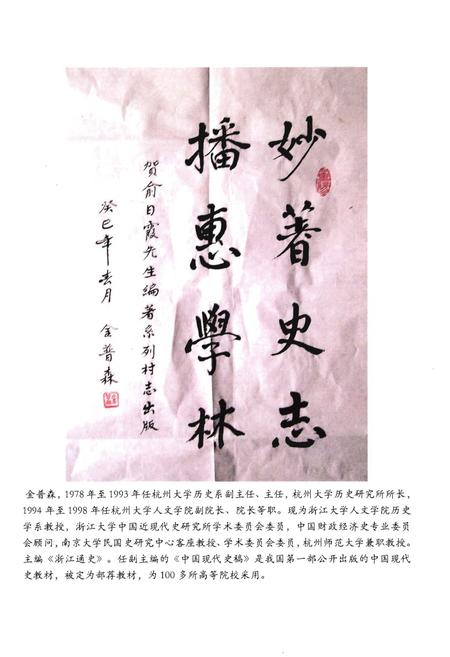 妙著史志
播惠學林
贺俞日霞先生编著系列村志出版
癸巳年玄月 金普森
金普森，1978 年至 1993 年任杭州大学历史系副主任、主任，杭州大学历史研究所所长，
1994 年至 1998 年任杭州大学人文学院副院长、院长等职。现为浙江大学人文学院历史
学系教授，浙江大学中国近现代史研究所学术委员会委员，中国财政经济史专业委员
会顾问，南京大学民国史研究中心客座教授、学术委员会委员，杭州师范大学兼职教授。
主编《浙江通史》。任副主编的《中国现代史稿》是我国第一部公开出版的中国现代
史教材，被定为部荐教材，为 100 多所高等院校采用。